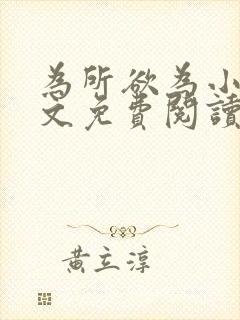 為所欲為小
文免費閱讀
黃立淳